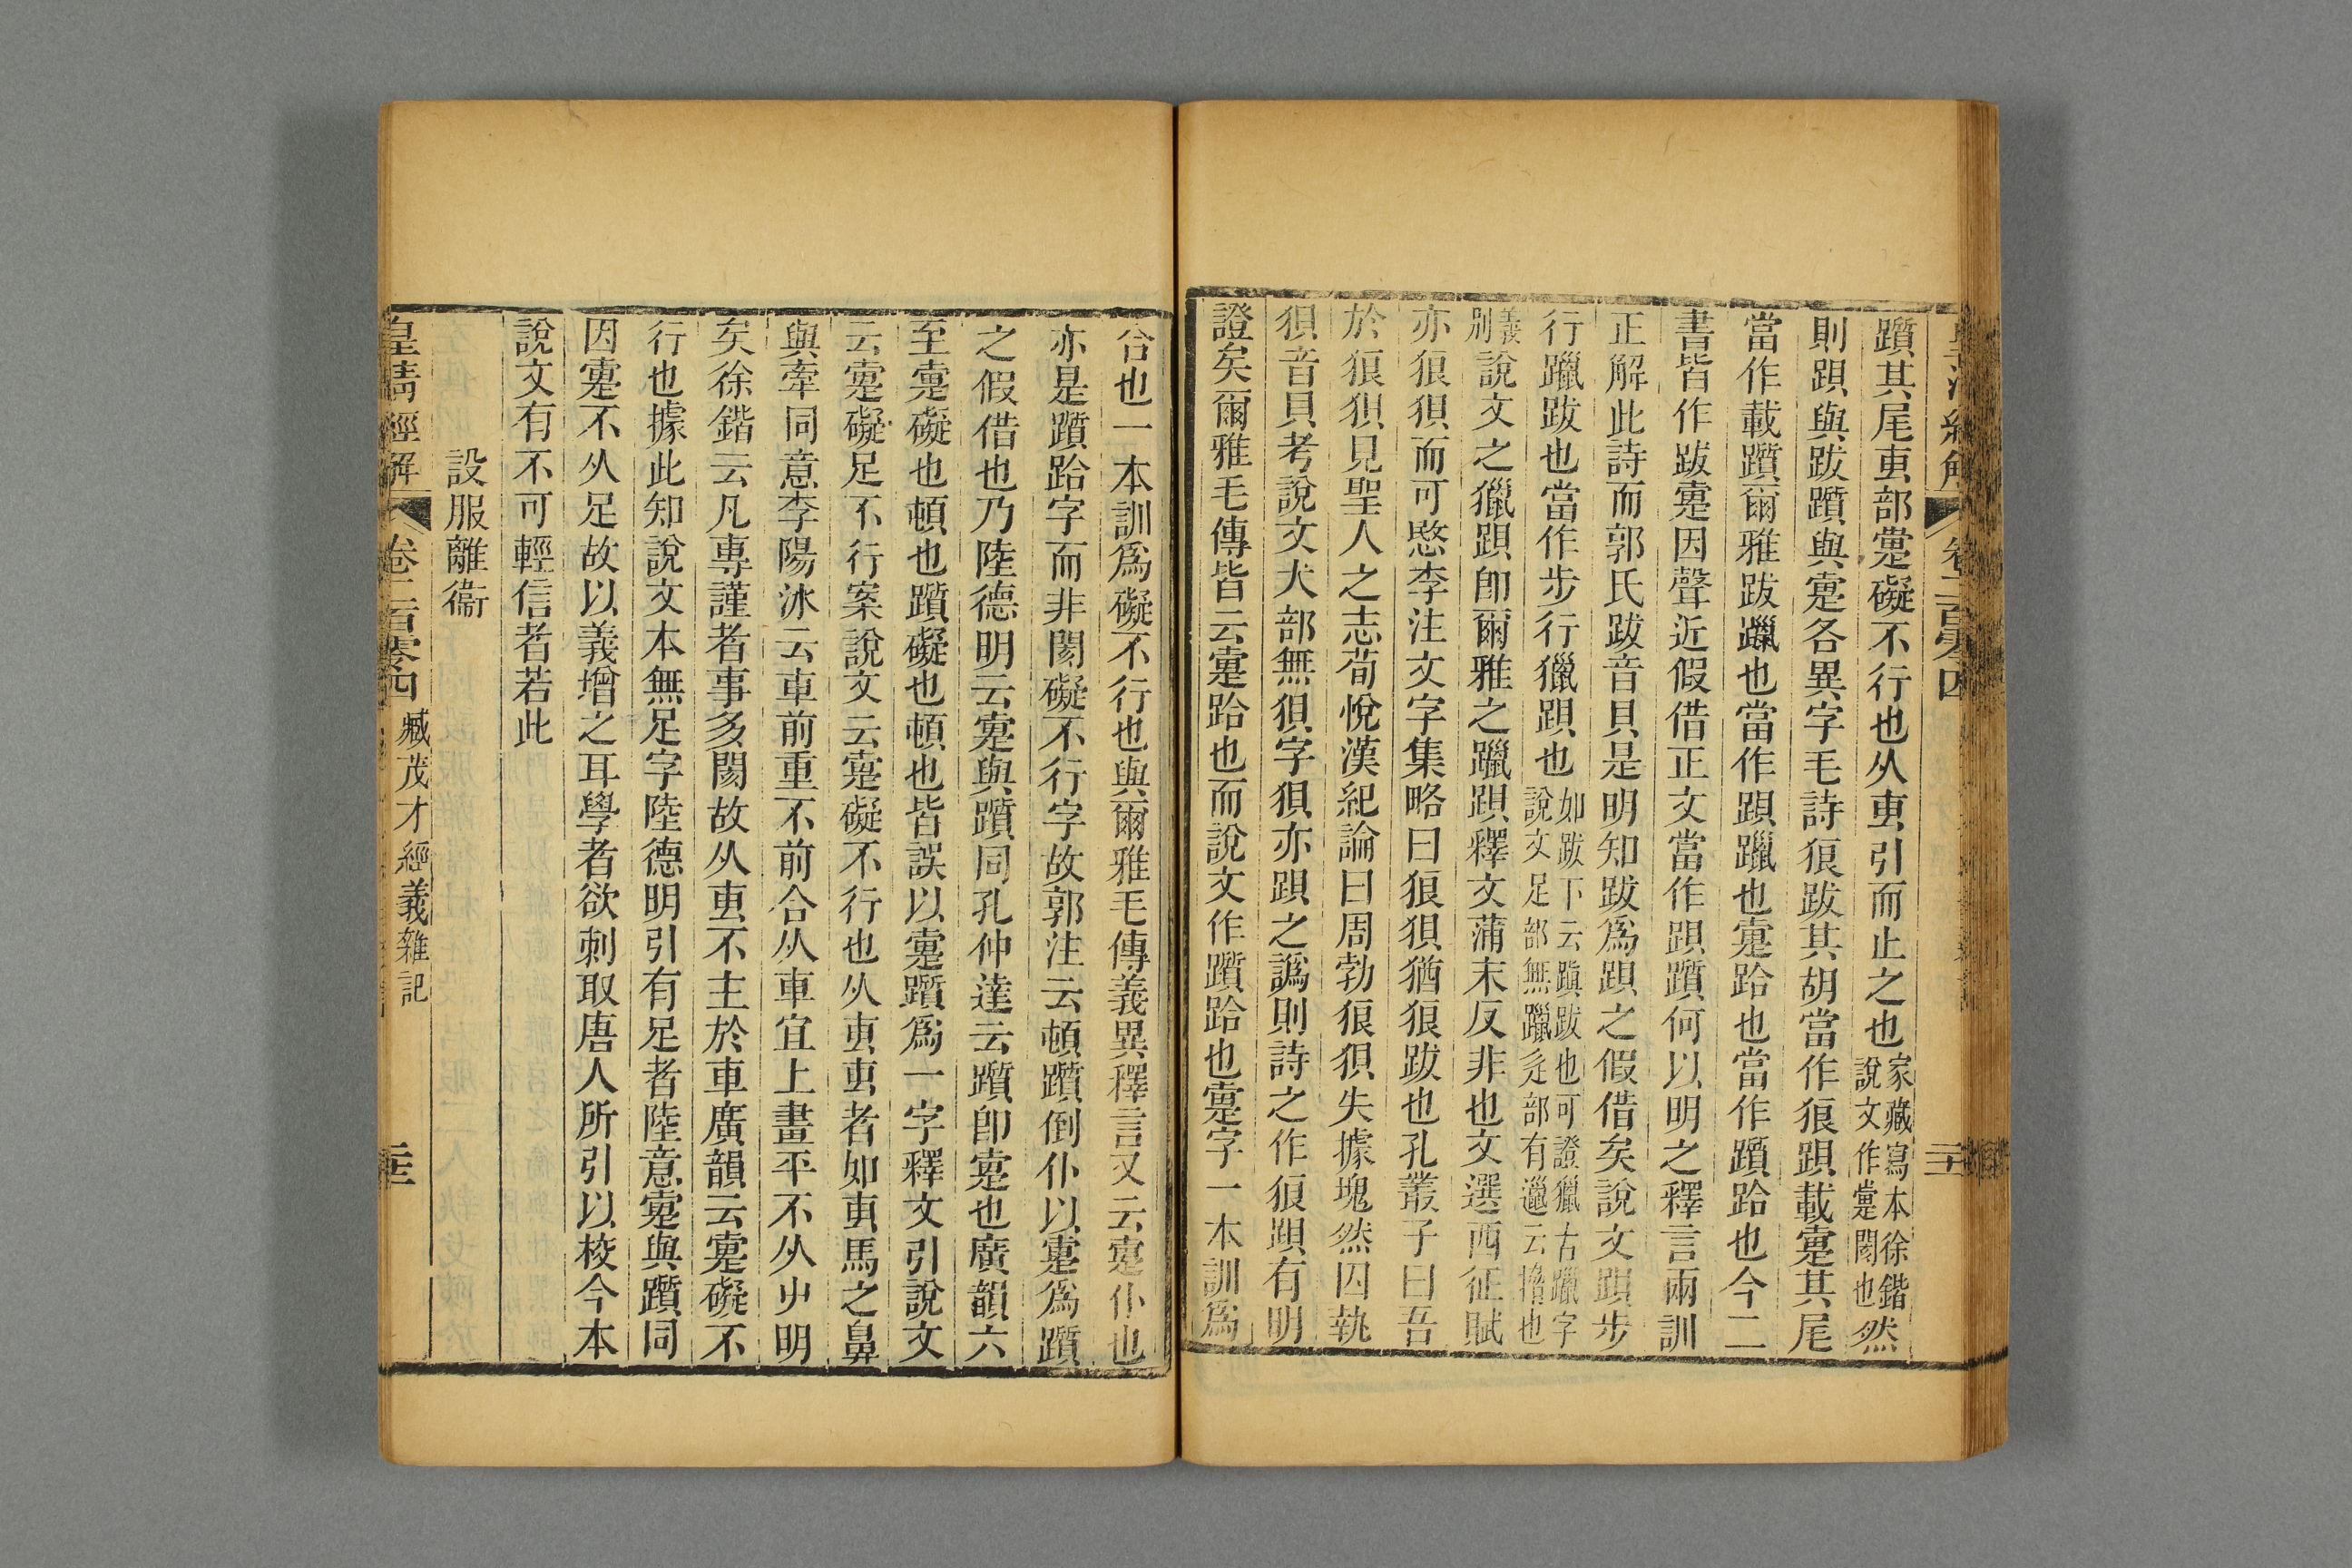 躓其尾叀部疐礙不行也从叀引而止之也家藏寫本徐鍇說文作疐閡也然
則跟與跋躓與疐各異字毛詩狼跋其胡當作狼跟載疐其尾
當作載躓爾雅跋躐也當作跟躐也疐跲也當作躓跲也今二
書皆作跋疐因聲近假借正文當作跟躓何以明之釋言兩訓
正解此詩而郭氏跋音貝是明知跋爲跟之假借矣說文跟步
行躐跋也當作步行獵跟也如跋下云蹎跋也可證獵古躐字說文足部無躐辵部有邋云搚也
義別說文之獵跟卽爾雅之躐跟釋文蒲末反非也文選西征賦
亦狼狽而可愍李注文字集略曰狼狽猶狼跋也孔叢子曰吾
於狼狽見聖人之志荀悅漢紀論曰周勃狼狽失據塊然囚執
狽音貝考說文犬部無狽字狽亦跟之譌則詩之作狼跟有明
證矣爾雅毛傳皆云疐跲也而說文作躓跲也疐字一本訓爲
合也一本訓爲礙不行也與爾雅毛傳義異釋言又云疐仆也
亦是躓跲字而非閡礙不行字故郭注云頓躓倒仆以疐爲躓
之假借也乃陸德明云疐與躓同孔仲達云躓卽疐也廣韻六
至疐礙也頓也躓礙也頓也皆誤以疐躓爲一字釋文引說文
云疐礙足不行案說文云疐礙不行也从叀叀者如叀馬之鼻
與牽同意李陽冰云車前重不前合从車宜上畫平不从屮明
矣徐鍇云凡專謹者事多閡故从叀不主於車廣韻云疐礙不
行也據此知說文本無足字陸德明引有足者陸意疐與躓同
因疐不从足故以義增之耳學者欲刺取唐人所引以校今本
說文有不可輕信者若此
設服離衞
皇清經解 卷二百零四 臧茂才經義雜記